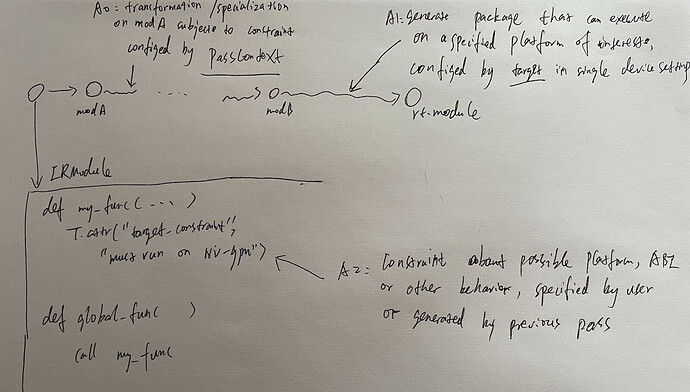 A0= transformation / specialization
on modA subjecte to constraint
configed by PassContext
A1= generate package that can execute
on a specified platform of interests,
configed by target in single device setting
modA
....
modB
rt.module
IRModule
def my_func( ... )
T.attr("target_constraint",
"must run on NV-gpu")
A2= Constraint about possible platform, ABI
or other behavior, specified by user
or generated by previous pass
def global_func )
call my_func